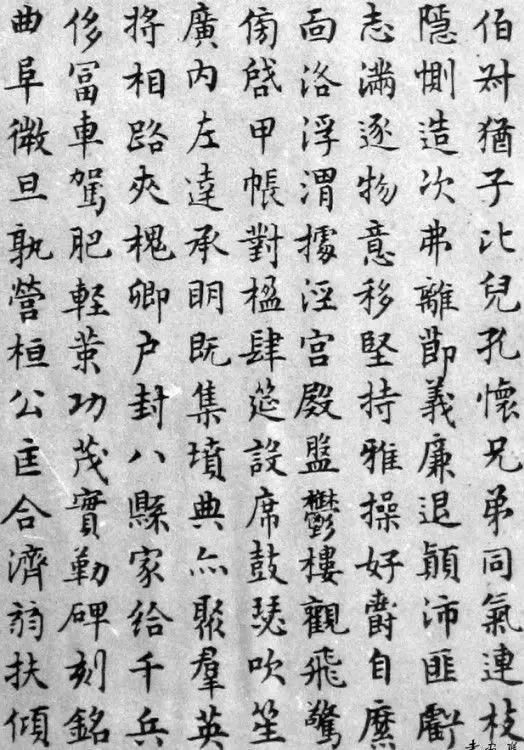 伯叔猶子比兒孔懷兄弟同氣連枝
隱惻造次弗離節義廉退顛沛匪虧
志滿逐物意移堅持雅操好爵自縻
面洛浮渭據涇宮殿盤鬱樓觀飛驚
傍啓甲帳對楹肆筵設席鼓瑟吹笙
廣內左達承明既集墳典亦聚羣英
將相路夾槐卿户封八縣家給千兵
侈冨車駕肥軽策功茂實勒碑刻銘
曲阜微旦孰營桓公匡合濟弱扶傾